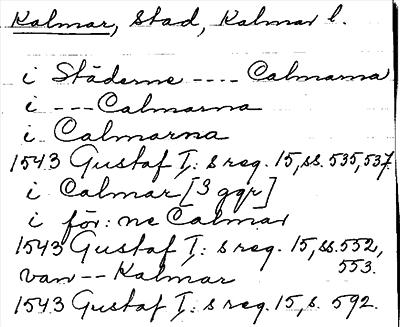 Kalmar, Stad, Kalmar l.
i Städerne ---- Calmarna
i --- Calmarna
i Calmarna
1543 Gustaf I:s reg. 15, ss. 535, 537.
i Calmar [3 ggr]
i för:ne Calmar
1543 Gustaf I:s reg. 15, ss. 552, 553.
van -- Kalmar
1543 Gustaf I:s reg. 15, s. 592.